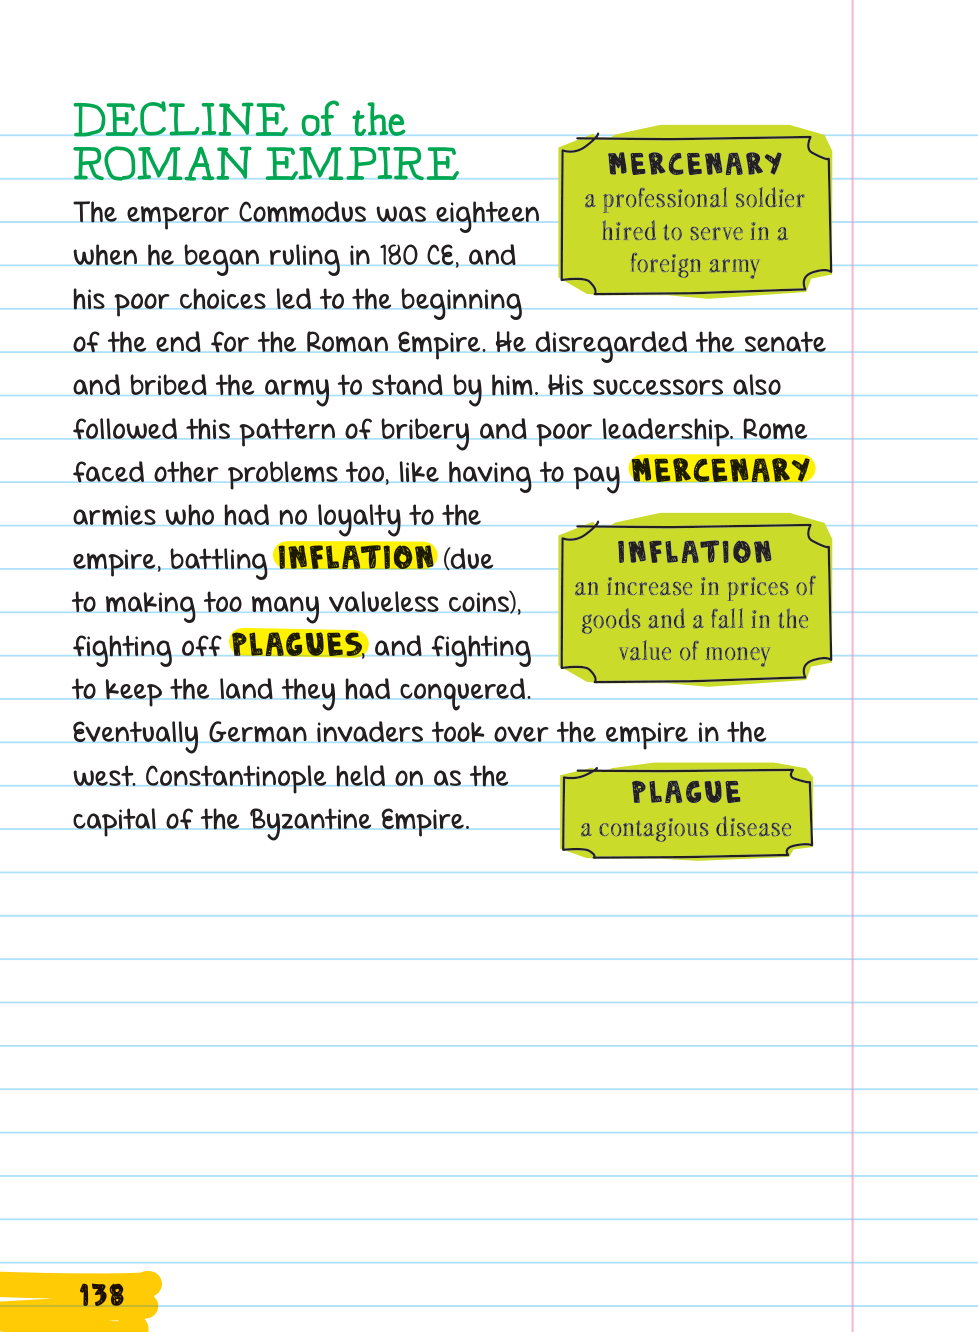 DECLINE of the
ROMAN EMPIRE
The emperor Commodus was eighteen
when he began ruling in 180 CE, and
his poor choices led to the beginning
of the end for the Roman Empire. He disregarded the senate
and bribed the army to stand by him. His successors also
followed this pattern of bribery and poor leadership. Rome
faced other problems too, like having to pay MERCENARY
armies who had no loyalty to the
empire, battling INFLATION (due
to making too many valueless coins),
fighting off PLAGUES, and fighting
to keep the land they had conquered.
Eventually German invaders took over the empire in the
west. Constantinople held on as the
capital of the Byzantine Empire.
MERCENARY
a professional soldier
hired to serve in a
foreign army
INFLATION
an increase in prices of
goods and a fall in the
value of money
PLAGUE
a contagious disease
138